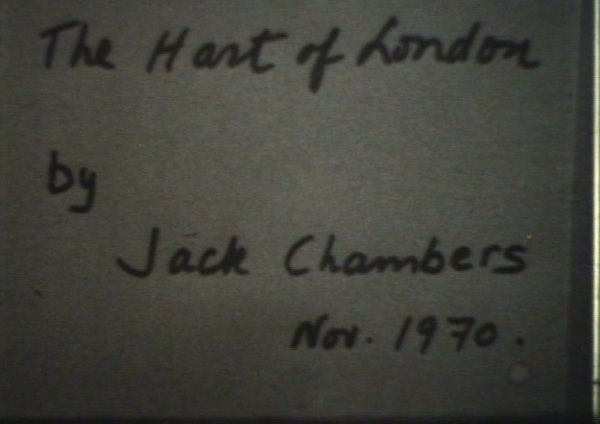 The Hart of London
by
Jack Chambers
Nov. 1970.